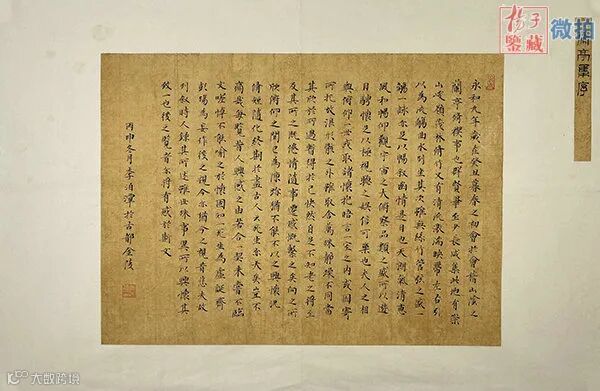 杨子
鉴藏
微拍
蘭亭集序
永和九年歲在癸丑暮春之初會於會稽山陰之
蘭亭脩禊事也群賢畢至少長咸集此地有崇
山峻嶺茂林脩竹又有清流激湍映帶左右引
以為流觴曲水列坐其次雖無絲竹管弦之盛一
觴一詠亦足以暢敘幽情是日也天朗氣清惠
風和暢仰觀宇宙之大俯察品類之盛所以遊
目騁懷足以極視聽之娛信可樂也夫人之相
與俯仰一世或取諸懷抱晤言一室之內或因寄
所托放浪形骸之外雖取舍萬殊靜躁不同當
其欣於所遇暫得於己快然自足不知老之將至
及其所之既惓情隨事遷感慨係之矣向之所
欣俯仰之間已為陳跡猶不能不以之興懷況
脩短隨化終期於盡古人云死生亦大矣豈不
痛哉每覽昔人興感之由若合一契未嘗不臨
文嗟悼不能喻之於懷固知一死生為虛誕齊
彭殤為妄作後之視今亦猶今之視昔悲夫故
列敘時人錄其所述雖世殊事異所以興懷其
致一也後之覽者亦將有感於斯文
丙申冬月李泊潭於古都金陵
大数跨境